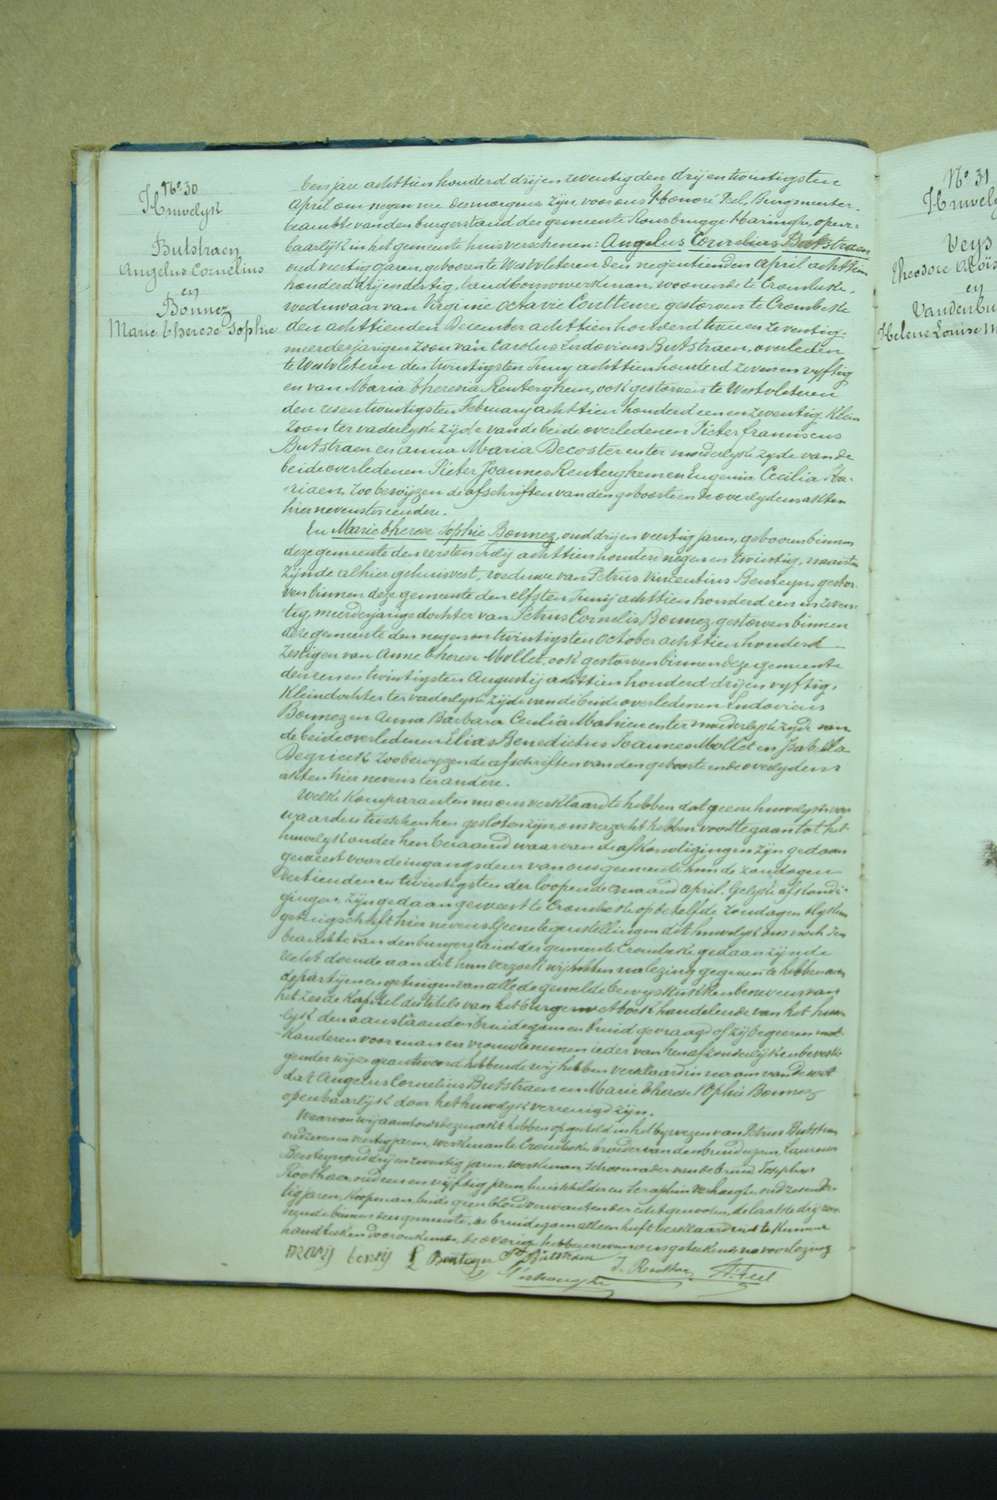 N° 30
Huwelyk
Butstraen
Angelus Cornelius
en
Bonnez
Marie Therese Sophie
Ten jare achttien honderd drij en zeventig den drij en twintigsten
April om negen ure des morgens zijn voor ons Honoré Feel, Burgmeester,
beambt van den burgerstand der gemeente Rousbrugge Haringhe, open-
baarlijk in het gemeente huis verschenen: Angelus Cornelius Butstraen
oud veertig jaren, geboren te Westvleteren den negentienden April achttien
honderd drij en dertig, landbouwwerkman, woonende te Crombeke,
weduwaar van Virginie Octavie Couttenye gestorven te Crombeke
den achttienden December achttien honderd twee en zeventig,
meerderjarigen zoon van Carolus Ludovicus Butstraen, overleden
te Westvleteren den twintigsten Juny achttien honderd zeven en vyftig
en van Maria Theresia Reuterghem, ook gestorven te Westvleteren
den zes en twintigsten February achttien honderd een en zeventig, klein
zoon ter vaderlyke zyde van de beide overledenen Pieter franciscus
Butstraen en Anna Maria Decoster en ter moederlyke zyde van de
beide overledenen Pieter Joannes Reuterghem en Eugenia Cecilia
zoo bewyzen de afschriften van den geboorte en de overlydens akten
hier nevens ter eendere.
En Marie Therese Sophie Bonnez, oud drij en veertig jaren, geboren binnen
deze gemeente den eersten July achttien honderd negen en twintig, naaister
zijnde alhier gehuisvest, weduwe van Petrus Vincentius Benteyn, gestor-
ven binnen deze gemeente den elfsten Juny achttien honderd een en zeven-
tig, meerderjarige dochter van Petrus Cornelis Bonnez gestorven binnen
deze gemeente den negen en twintigsten October achttien honderd
zestig en van Anne Therese Mollet, ook gestorven binnen deze gemeente
den een en twintigsten Augusty achttien honderd drij en vyftig,
kleindochter ter vaderlyke zijde van de beide overledenen Ludovicus
Bonnez en Anna Barbara Cecilia Mahieu en ter moederlyke zijde van
de beide overledenen Elias Benedictus Joannes Mollet en Isabella
zoo bewyzen de afschriften van den geboorte en de overlydens
akten hier nevens ter andere.
Welke komparanten na ons verklaard te hebben dat geene huwelyks voor
waarden tusschen hen gesloten zijn, ons verzocht hebben voort te gaan tot het
huwelyk onder hen beraamd waarvan de afkondigingen zijn gedaan
geweest voor de ingangsdeur van ons gemeente huis de zondagen
dertienden en twintigsten der loopende maand april. Gelyke afkondi-
gingen zijn gedaan geweest te Crombeke op de zelfde zondagen blykens
getuigschrift hier nevens. Geene tegenstellingen dit huwelyk ons noch den
beambte van den burgerstand der gemeente Crombeke gedaan zijnde
recht doende aan dit hun verzoek wij, na lezing gegeven te hebben aan
de partijen en getuigen van alle de gemelde bewysstukken benevens van
het zesde kapittel des titels van het burger wetboek handelende van het huwe-
lyk den aanstaanden bruidegom en bruid gevraagd of zij begeeren mal-
kanderen voor man en vrouw te nemen ieder van hen afzonderlyk en bevesti-
gender wijze geantwoord hebbende, wij hebben verklaard in naam van de wet
dat Angelus Cornelius Butstraen en Marie Therese Sophie Bonnez
openbaarlijk door het huwelyk vereenigd zijn.
Waarvan wij aanstonds akt hebben opgesteld in het bywezen van Petrus Butstraen
oud zeven en veertig jaren, werkman te Crombeke broeder van den bruidegom, Laurens
Benteyn oud drij en zeventig jaren, werkman, schoonvader van de bruid, Josephus
Roothaer, oud een en vyftig jaren, huishouder en Seraphin Verhaeghe, oud zes en der-
tig jaren, koopman, beide geen bloedverwanten der echtgenooten, de laatste drij woo-
nende binnen deze gemeente, de bruidegom alleen heeft verklaard niet te kunnen
handteeken voor onkunde, de overige hebben nevens ons geteekend na voorlezing
L Benteyn P Butstraen
S. Verhaeghe J. Roothaer H. Feel
N° 31
Huwely
Veys
Theodore Aloïs
en
Vandenbu
Helene Louise M